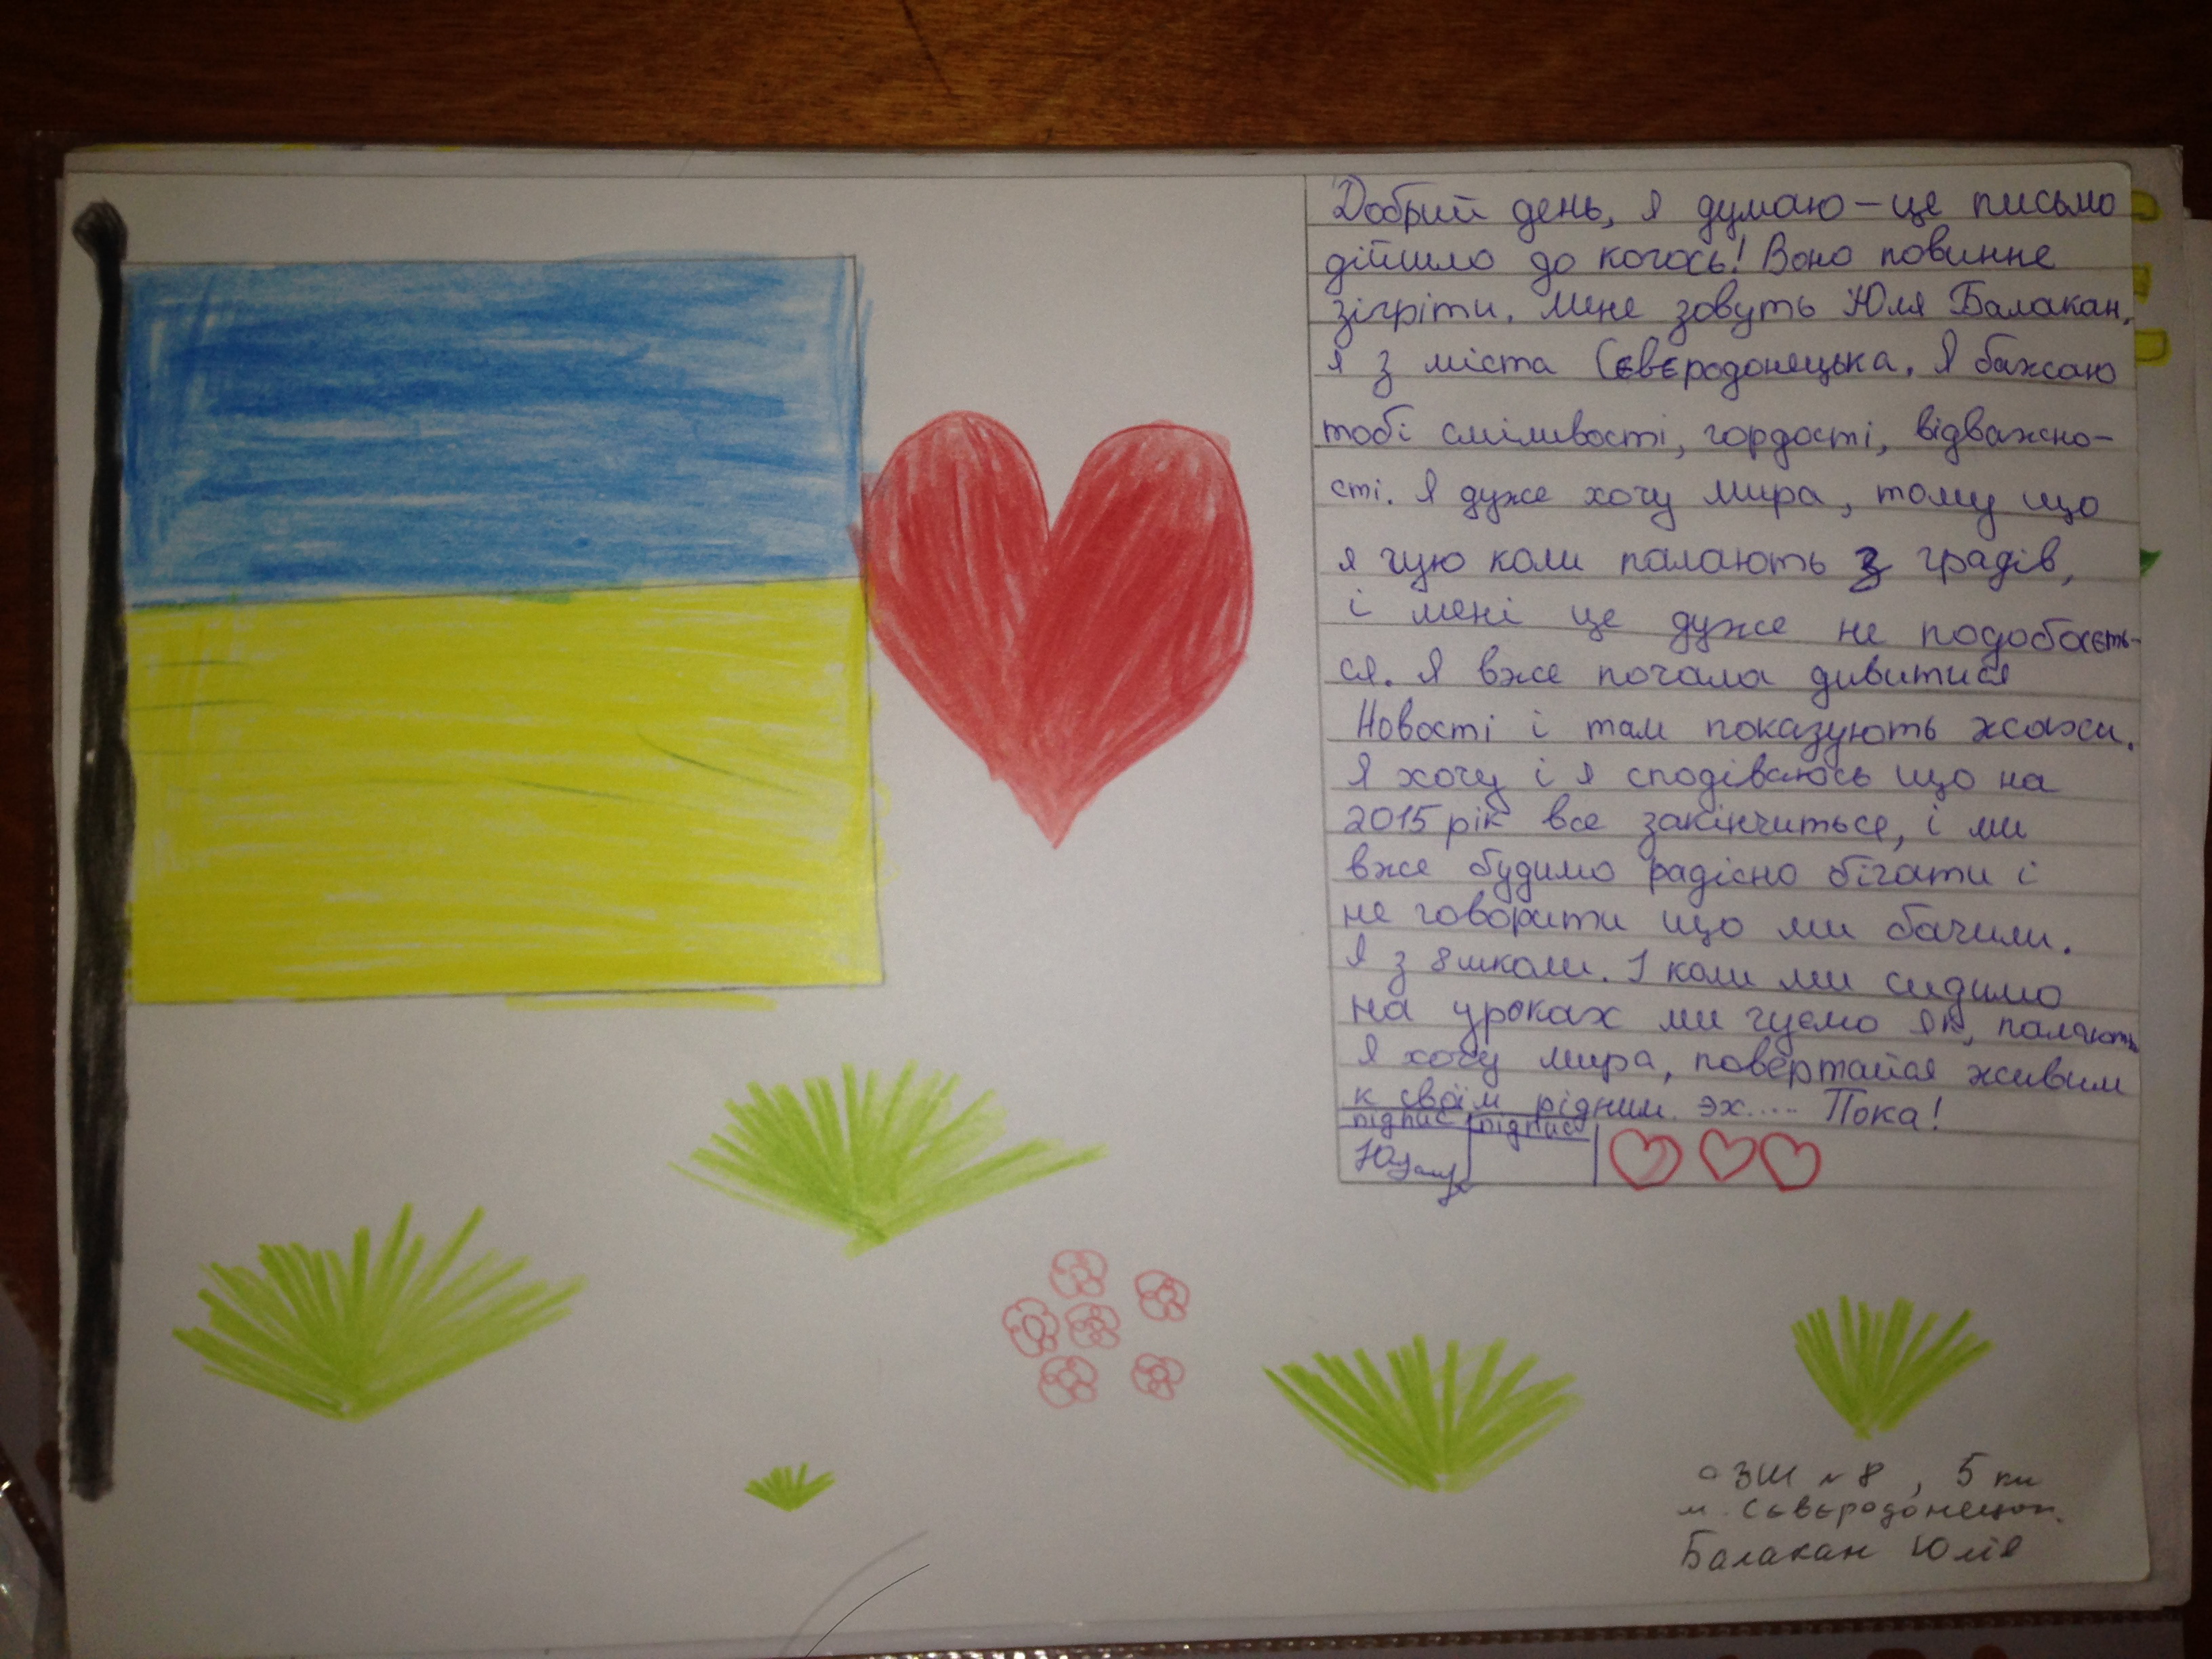 Добрий день, я думаю – це письмо
дійшло до когось! Воно повинне
зігріти. Мене зовуть Юля Балакан,
я з міста Сєвєродонецька. Я бажаю
тобі сміливості, гордості, відважно-
сті. Я дуже хочу мира, тому що
я чую коли палають з градів,
і мені це дуже не подобаєть-
ся. Я вже почала дивитися
Новості і там показують жахи.
Я хочу і я сподіваюсь що на
2015 рік все закінчиться, і ми
вже будимо радісно бігати і
не говорити що ми бачили.
Я з 8 школи. І коли ми сидимо
на уроках ми чуємо як, палають
Я хочу мира, повертайся живим
к своїм рідним эх.... Пока!
підпис підпис
ЗШ №8, 5 кл
м. Сєвєродонецьк.
Балакан Юлія